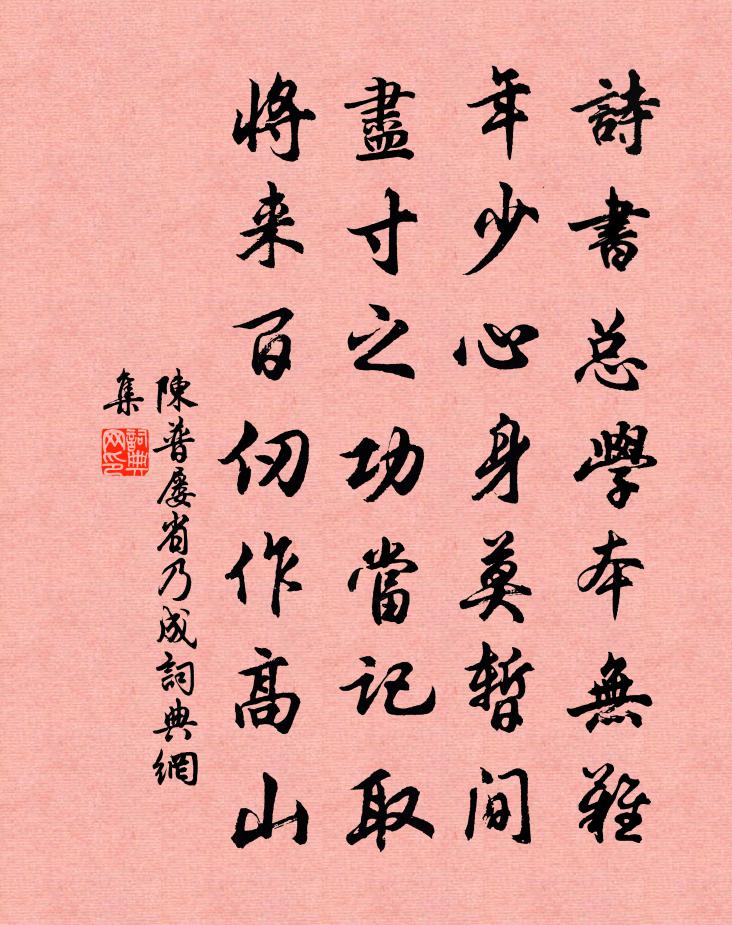 詩書总學本無難
年少心身莫暫间
盡寸之功當记取
将来百仞作高山
陳普屡省乃成詞典網
集
詞典
网印